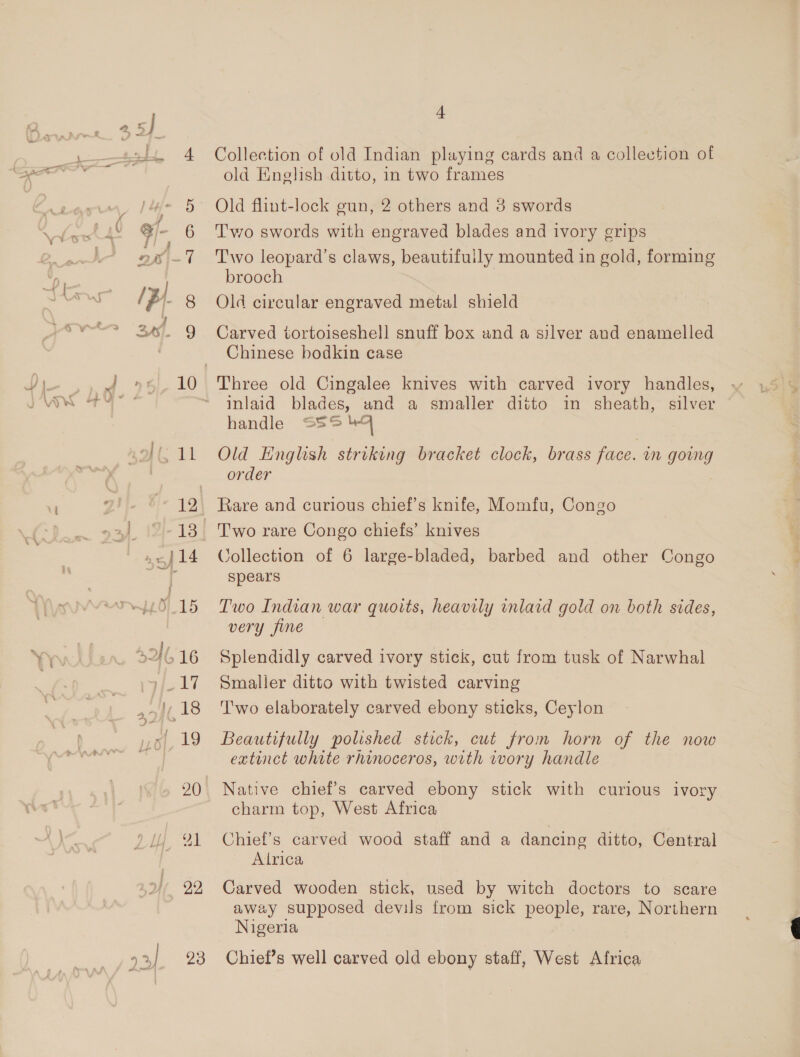 4
4 Collection of old Indian playing cards and a collection of
old English ditto, in two frames
5 Old flint-lock gun, 2 others and 3 swords
6 Two swords with engraved blades and ivory grips
7 Two leopard's claws, beautifully mounted in gold, forming
brooch
8 Old circular engraved metal shield
9 Carved tortoiseshell snuff box and a silver and enamelled
Chinese bodkin case
10 Three old Cingalee knives with carved ivory handles,
inlaid blades, and a smaller ditto in sheath, silver
handle
11 Old English striking bracket clock, brass face. in going
order
12 Rare and curious chief's knife, Momfu, Congo
13 Two rare Congo chiefs' knives
14 Collection of 6 large-bladed, barbed and other Congo
spears
15 Two Indian war quoits, heavily inlaid gold on both sides,
very fine
16 Splendidly carved ivory stick, cut from tusk of Narwhal
17 Smaller ditto with twisted carving
18 Two elaborately carved ebony sticks, Ceylon
19 Beautifully polished stick, cut from horn of the now
extinct white rhinoceros, with ivory handle
20 Native chief's carved ebony stick with curious ivory
charm top, West Africa
21 Chief's carved wood staff and a dancing ditto, Central
Africa
22 Carved wooden stick, used by witch doctors to scare
away supposed devils from sick people, rare, Northern
Nigeria
23/- 23 Chief's well carved old ebony staff, West Africa